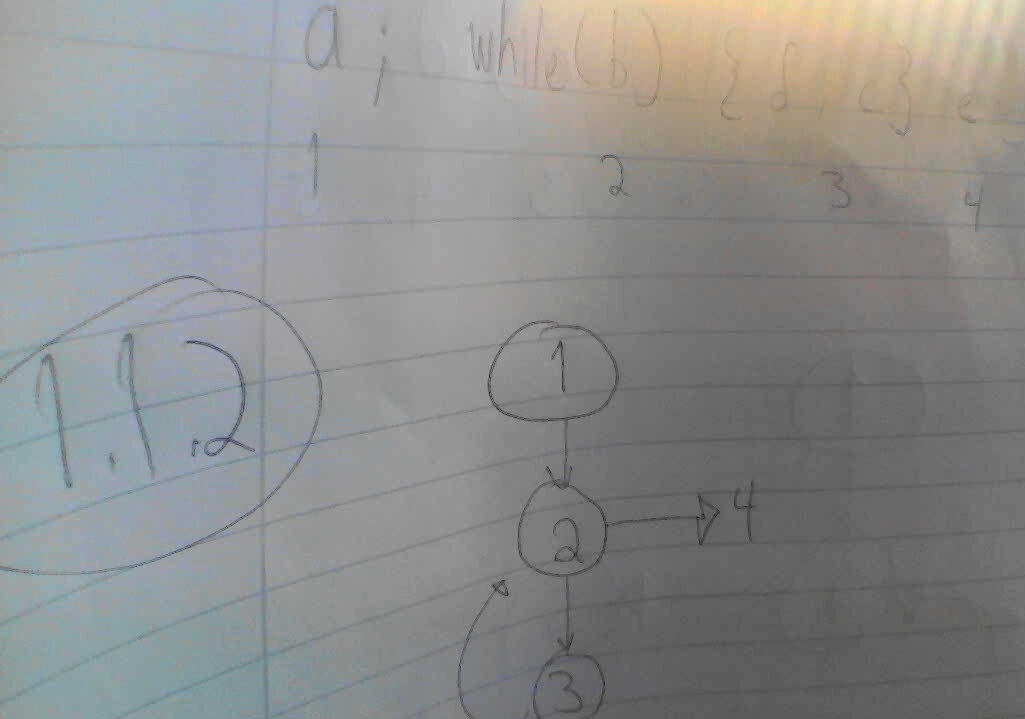 a; while(b) {d, c} e
1 2 3 4
1.1.2
1
2 4
3